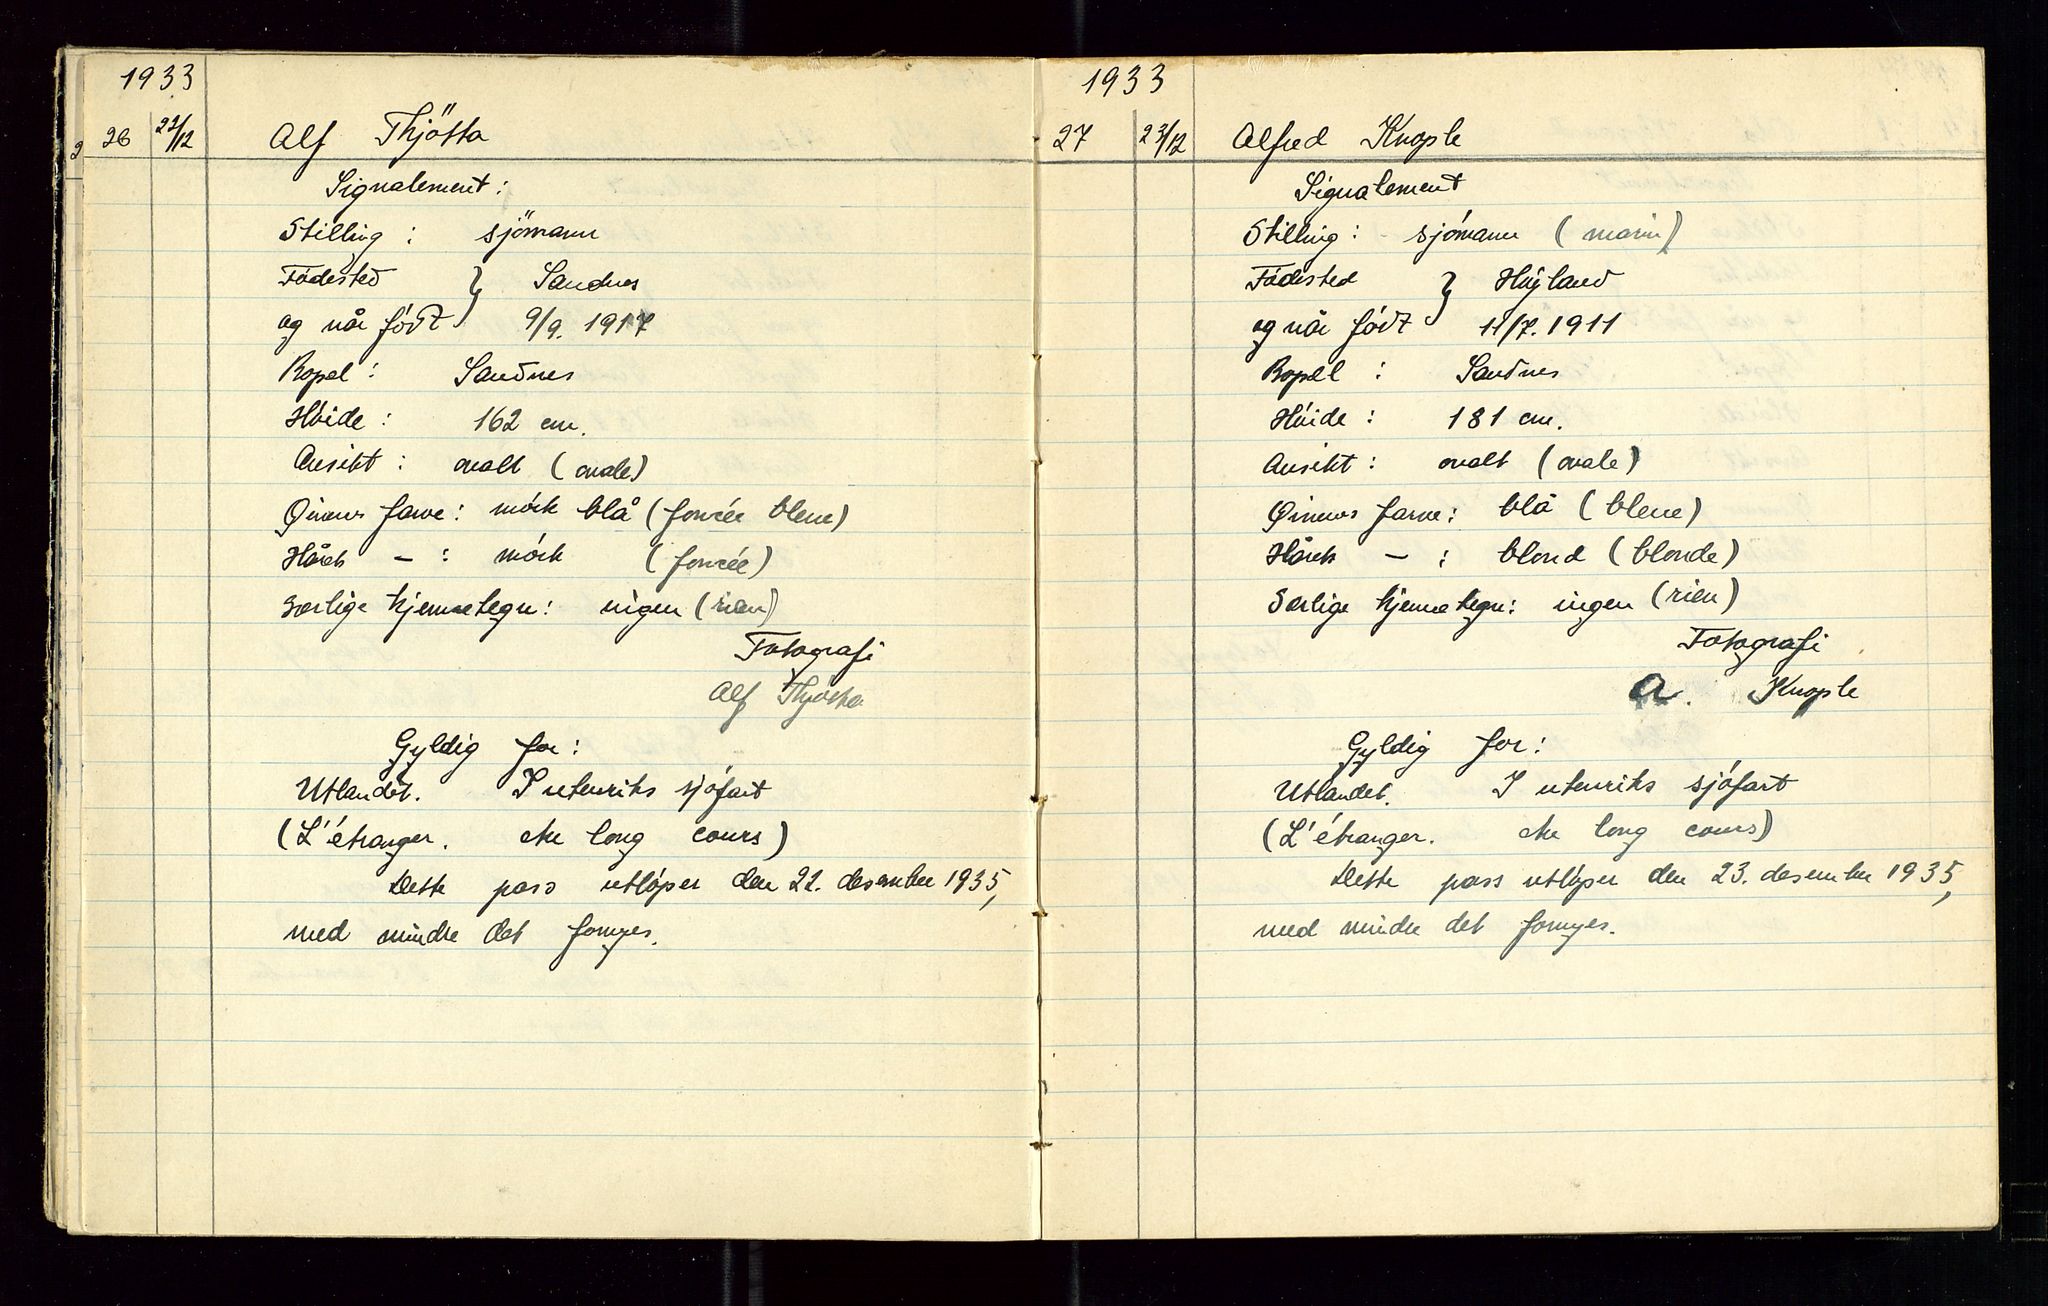 1933
26 22/12 Alf Thjötta
Signalement:
Stilling: sjömann
Födested } Sandnes
og når född 9/9. 1917
Bopel: Sandnes
Höide: 162 cm.
Ansikt: ovalt (ovale)
Øinenes farve: mörk blå (foncée bleue)
Hårets — : mörk (foncée)
Særlige kjennetegn: ingen (rien)
Fotografi
Alf Thjötta
Gyldig for:
Utlandet. I utenriks sjöfart
(L'étranger. the long cours)
Dette pass utlöper den 22. desember 1935,
med mindre det fornyes.
1933
27 23/12 Alfred Knople
Signalement
Stilling: sjómann (marin)
Födested } Höyland
og når född 11/7. 1911
Bopæl: Sandnes
Höide: 181 cm.
Ansikt: ovalt (ovale)
Øinenes farve: blå (bleue)
Hårets — : blond (blonde)
Særlige kjennetegn: ingen (rien)
Fotografi
A. Knople
Gyldig for:
Utlandet. I utenriks sjöfart
(L'étranger. the long cours)
Dette pass utlöper den 23. desember 1935,
med mindre det fornyes.